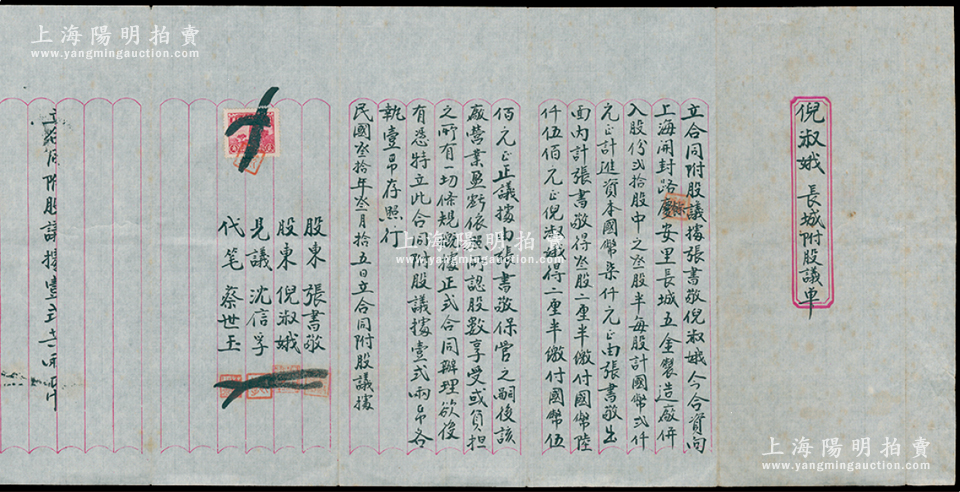 上海陽明拍賣
www.yangmingauction.com
倪淑娥 長城附股議單
立合同附股議據張書敬倪淑娥今合資向
上海開封路慶安里長城五金製造廠併
入股份弍拾股中之叁股半每股計國幣弍仟
元正計進資本國幣柒仟元正由張書敬出
面內計張書敬得叁股二厘半繳付國幣陸
仟伍佰元正倪淑娥得二厘半繳付國幣伍
佰元正正議據由張書敬保管之嗣後該
廠營業盈虧依照所認股數享受或負担
之所有一切條規概據正式合同辦理欲後
有憑特立此合同附股議據壹式兩帋各
執壹帋存照行
民國叁拾年叁月拾五日立合同附股議據
股東 張書敬
股東 倪淑娥
見議 沈信孚
代笔 蔡世玉
立合同附股議據壹式
上海陽明拍賣
www.yangmingauction.com
上海陽明拍賣
www.yangmingauction.com